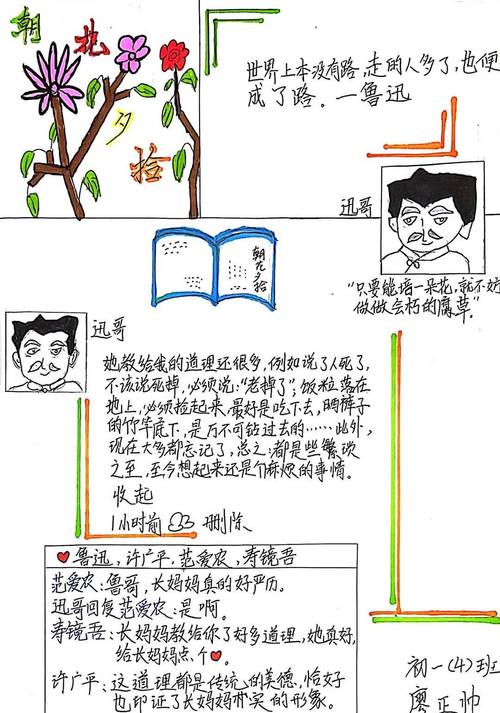 朝花夕拾
世界上本没有路,走的人多了,也便
成了路。—鲁迅
迅哥
"只要能培一朵花,就不妨
做做会朽的腐草"
朝花夕拾
迅哥
她教给我的道理还很多,例如说了人死了,
不该说死掉,必须说:"老掉了";饭粒落在
地上,必须捡起来,最好是吃下去,晒裤子
的竹竿底下,是万不可钻过去的……此外,
现在大多都忘记了,总之:都是些繁琐
之至,至今想起来还是个麻烦的事情。
收起
1小时前 删除
鲁迅,许广平,范爱农,寿镜吾
范爱农:鲁哥,长妈妈真的好严厉。
迅哥回复范爱农:是啊。
寿镜吾:长妈妈教给你了好多道理,她真好,
给长妈妈点个♥。
许广平:这道理都是传统的美德,恰好
也印证了长妈妈朴实的形象。
初一(4)班
廖正帅